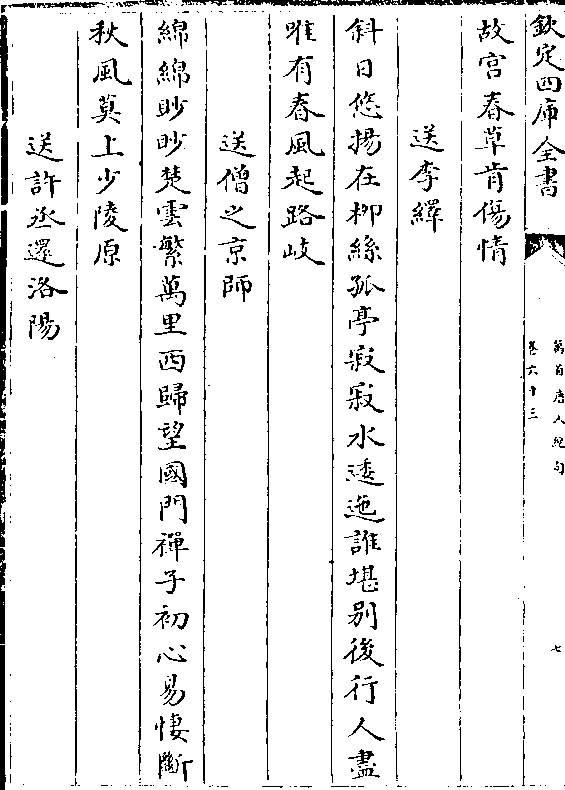 欽定四庫全書
萬首唐人絶句
卷六十三
七
故宫春草肯傷情
送李繹
斜日悠揚在柳絲孤亭寂寂水逶迤誰堪别後行人盡
唯有春風起路岐
送僧之京師
綿綿眇眇楚雲繁萬里西歸望國門禪子初心易悽斷
秋風莫上少陵原
送許丞還洛陽